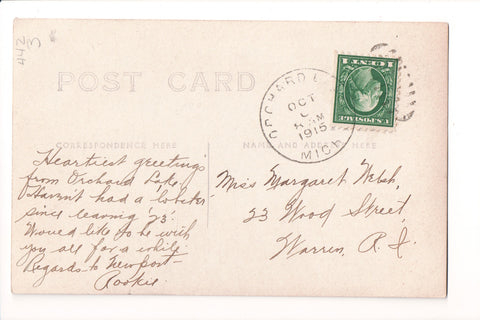 442
3
POST CARD
CORRESPONDENCE HERE
NAME AND ADDRESS HERE
ORCHARD L
OCT
AM
1915
MICH
U.S. POSTAGE
1 CENT 1
Heartiest greetings
from Orchard Lake.
Haven't had a 'lobster'
since leaving '23'.
Would like to be with
you all for a while.
Regards to Newport-
Rookie
Miss Margaret Welsh,
23 Wood Street,
Warren, R. I.